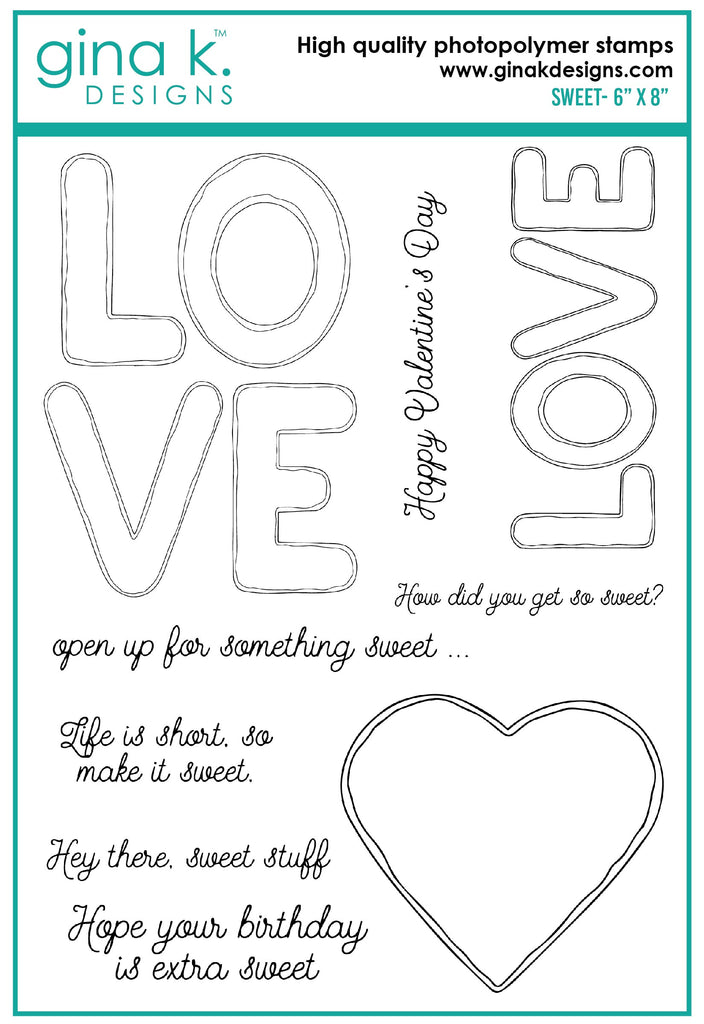 gina k.™
DESIGNS
High quality photopolymer stamps
www.ginakdesigns.com
SWEET- 6” X 8”
LO
VE
Happy Valentine's Day
LOVE
How did you get so sweet?
open up for something sweet ...
Life is short, so
make it sweet.
Hey there, sweet stuff
Hope your birthday
is extra sweet